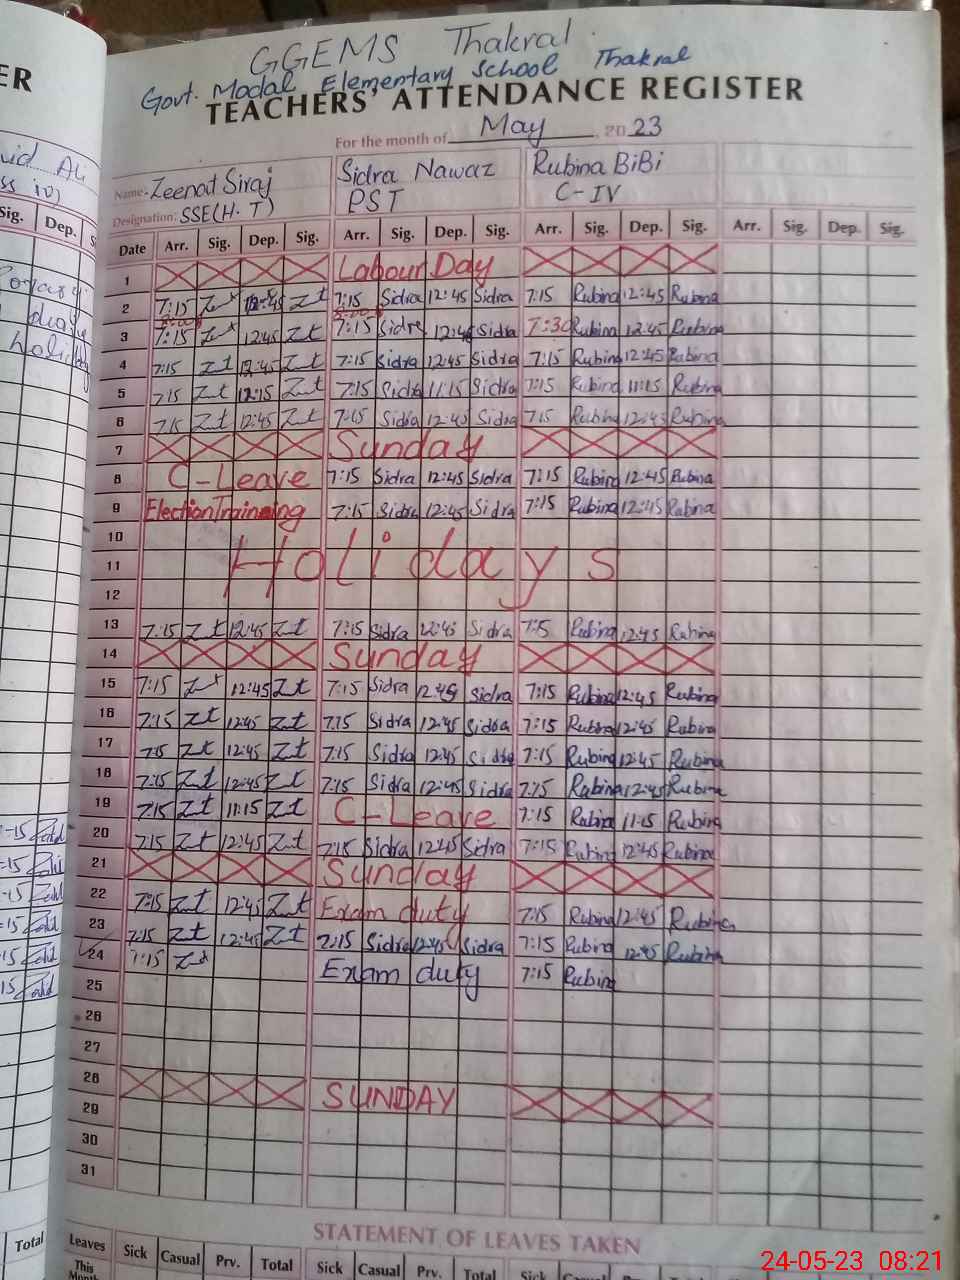 ER
GGEMS Thakral
Govt. Modal Elementary School Thakral
TEACHERS' ATTENDANCE REGISTER
For the month of May, 2023
Name: Zeenat Siraj Sidra Nawaz Rubina BiBi
Designation: SSE(H.T) PST C-IV
Date Arr. Sig. Dep. Sig. Arr. Sig. Dep. Sig. Arr. Sig. Dep. Sig. Arr. Sig. Dep. Sig.
1 Labour Day
2 7:15 Zt 12:45 Zt 7:15 Sidra 12:45 Sidra 7:15 Rubina 12:45 Rubina
8:00 8:00
3 7:15 Zt 12:45 Zt 7:15 Sidra 12:45 Sidra 7:30 Rubina 12:45 Rubina
4 7:15 Zt 12:45 Zt 7:15 Sidra 12:45 Sidra 7:15 Rubina 12:45 Rubina
5 7:15 Zt 12:15 Zt 7:15 Sidra 11:15 Sidra 7:15 Rubina 11:15 Rubina
6 7:15 Zt 12:45 Zt 7:15 Sidra 12:45 Sidra 7:15 Rubina 12:45 Rubina
7 Sunday
8 C-Leave 7:15 Sidra 12:45 Sidra 7:15 Rubina 12:45 Rubina
9 Election Training 7:15 Sidra 12:45 Sidra 7:15 Rubina 12:45 Rubina
10
11 Holidays
12
13 7:15 Zt 12:45 Zt 7:15 Sidra 12:45 Sidra 7:5 Rubina 12:45 Rubina
14 Sunday
15 7:15 Zt 12:45 Zt 7:15 Sidra 12:45 Sidra 7:15 Rubina 12:45 Rubina
16 7:15 Zt 12:45 Zt 7:15 Sidra 12:45 Sidra 7:15 Rubina 12:45 Rubina
17 7:15 Zt 12:45 Zt 7:15 Sidra 12:45 Sidra 7:15 Rubina 12:45 Rubina
18 7:15 Zt 12:45 Zt 7:15 Sidra 12:45 Sidra 7:15 Rubina 12:45 Rubina
19 7:15 Zt 11:15 Zt C-Leave 7:15 Rubina 11:15 Rubina
20 7:15 Zt 12:45 Zt 7:15 Sidra 12:45 Sidra 7:15 Rubina 12:45 Rubina
21 Sunday
22 7:15 Zt 12:45 Zt Exam duty 7:15 Rubina 12:45 Rubina
23 7:15 Zt 12:45 Zt 7:15 Sidra 12:45 Sidra 7:15 Rubina 12:45 Rubina
24 7:15 Zt Exam duty 7:15 Rubina
25
26
27
28 SUNDAY
29
30
31
STATEMENT OF LEAVES TAKEN
Leaves Sick Casual Prv. Total Sick Casual Prv. Total Sick Casual Prv.
This
Month
Sig. Dep.
Total
24-05-23 08:21